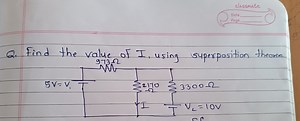 Classmate
Date
Page
Q. Find the value of I, using superposition theorem
973Ω
5V=V,
2170
Ω
3300Ω
I
V₂=10V